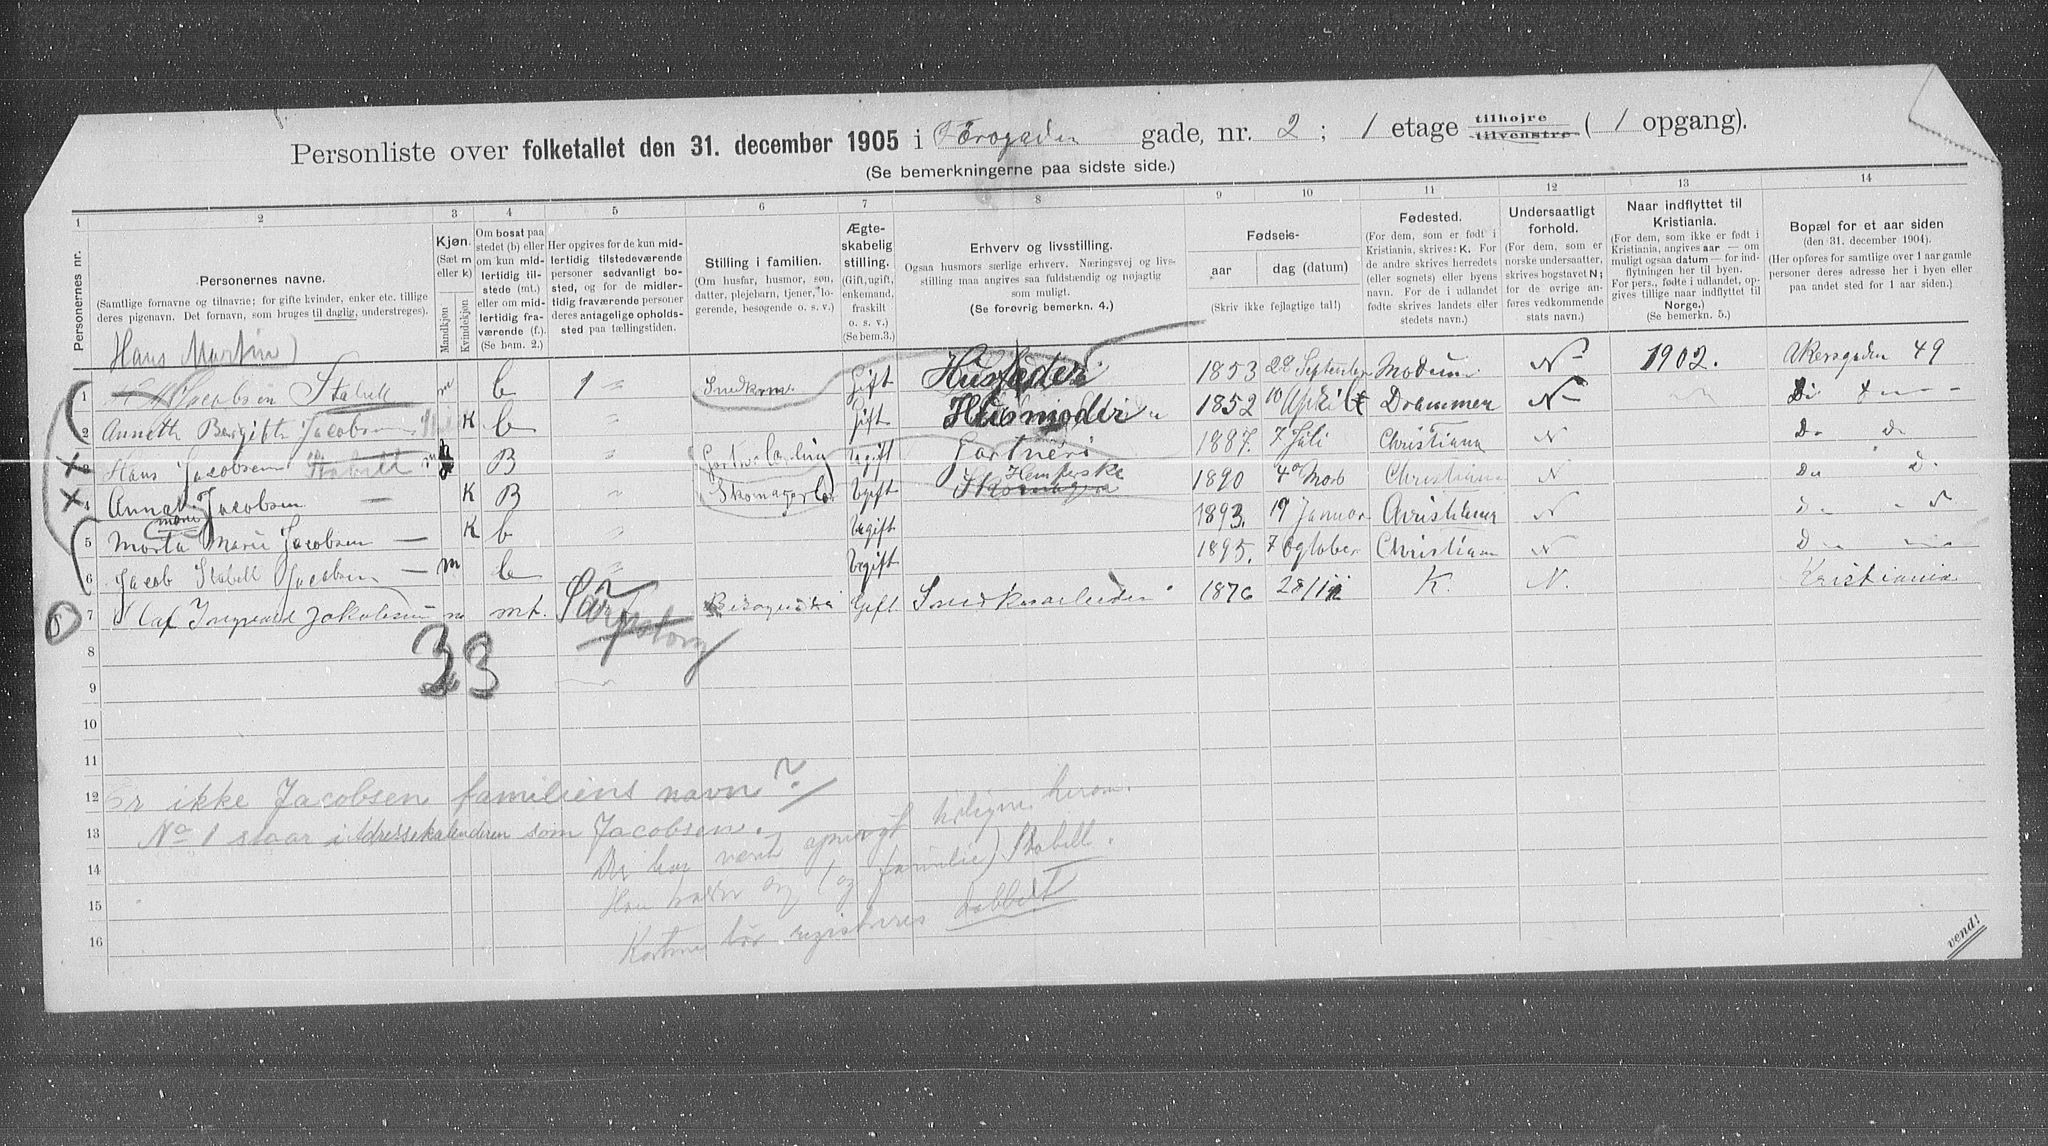 Personliste over folketallet den 31. december 1905 i Færogaden gade, nr. 2 ; 1 etage tilhøjre tilvenstre ( 1 opgang).
(Se bemerkningerne paa sidste side.)
1 2 3 4 5 6 7 8 9 10 11 12 13 14
Personernes nr.
Personernes navne.
(Samtlige fornavne og tilnavne; for gifte kvinder, enker etc. tillige
deres pigenavn. Det fornavn, som bruges til daglig, understreges).
Kjøn.
(Sæt m
eller k)
Mandkjøn
Kvindekjøn
Om bosat paa
stedet (b) eller
om kun mid-
lertidig til-
stede (mt.)
eller om mid-
lertidig fra-
værende (f.)
(Se bem. 2.)
Her opgives for de kun mid-
lertidig tilstedeværende
personer sedvanligt bo-
sted, og for de midler-
tidig fraværende personer
deres antagelige opholds-
sted paa tællingstiden.
Stilling i familien.
(Om husfar, husmor, søn,
datter, plejebarn, tjener, lo-
gerende, besøgende o. s. v.)
Ægte-
skabelig
stilling.
(Gift, ugift,
enkemand,
fraskilt
o. s. v.)
(Se bem.3.)
Erhverv og livsstilling.
Ogsaa husmors særlige erhverv. Næringsvej og livs-
stilling maa angives saa fuldstændig og nøjagtig
som muligt.
(Se forøvrig bemerkn. 4.)
Fødsels-
aar dag (datum)
(Skriv ikke fejlagtige tal!)
Fødested.
(For dem, som er født i
Kristiania, skrives: K. For
de andre skrives herredets
(eller sognets) eller byens
navn. For de i udlandet
fødte skrives landets eller
stedets navn.)
Undersaatligt
forhold.
(For dem, som er
norske undersaatter,
skrives bogstavet N;
for de øvrige an-
føres vedkommende
stats navn.)
Naar indflyttet til
Kristiania.
(For dem, som ikke er født i
Kristiania, angives aar — om
muligt ogsaa datum — for ind-
flytningen her til byen.
For pers., fødte i udlandet, op-
gives tillige naar indflyttet til
Norge.)
(Se bemerkn. 5.)
Bopæl for et aar siden
(den 31. december 1904).
(Her opføres for samtlige over 1 aar gamle
personer deres adresse her i byen eller
paa andet sted for 1 aar siden.)
Hans Martin
1 Jacobsen Stabell m b 1 Snedker Gift Husfader 1853 September Modum N 1902. Akersgaden 49
2 Annette Bergitte Jacobsen K b Gift Husmoder 1852 10 April Drammen N Do
3 Hans Jacobsen Stabell m B Gartnerlærling Ugift Gartneri 1887. 7 Juli Christiana N Do Do
4 Anna Jacobsen K B Skomager Ugift Skomager 1890 Christiana N Do Do
5 Marta Marie Jacobsen K b Ugift 1893. 19 Januar Christiana N
6 Jacob Stabell Jacobsen m b Ugift 1895. 7 October Christiana N Do
7 Olaf Ingvard Jakobsen m mt. Sarpsborg Besøgende Gift Snedkerarbeider 1876 28/11 K. N. Kristiania
33
8
9
10
11
12 Er ikke Jacobsen familiens navn?
13 No 1 staar i Adressekalenderen som Jacobsen.
14 Der har været spurgt herom.
15 Han kalder sig (og familie) Stabell.
16 Kortene bør registreres dobbelt
vend!